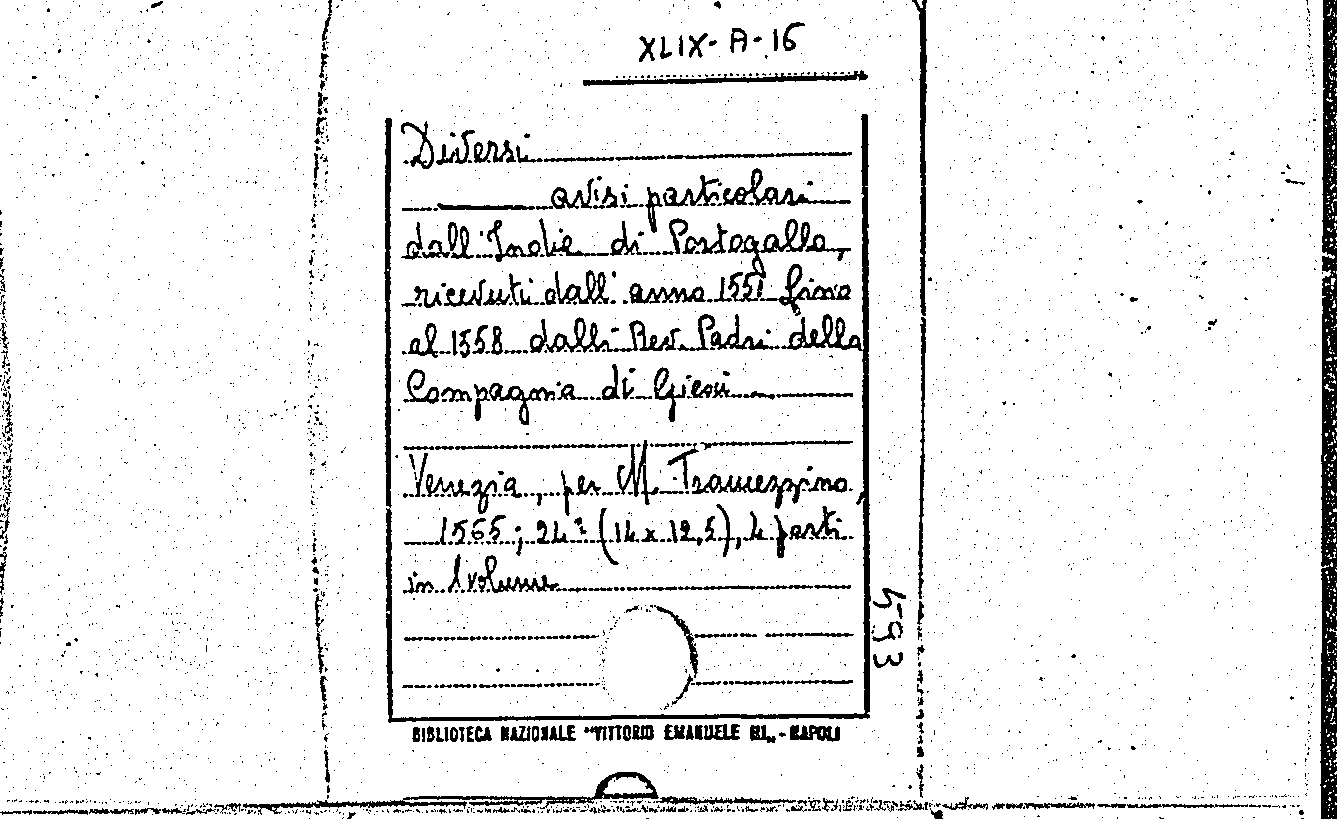 XLIX-A-16
Diversi
avisi particolari
dall'Indie di Portogallo,
ricevuti dall'anno 1551 fino
al 1558 dalli Rev. Padri della
Compagnia di Giesù
Venezia, per M. Tramezzino,
1565; 24º (14 x 12,5), 4 parti
in 1 volume
593
BIBLIOTECA NAZIONALE "VITTORIO EMANUELE III" - NAPOLI